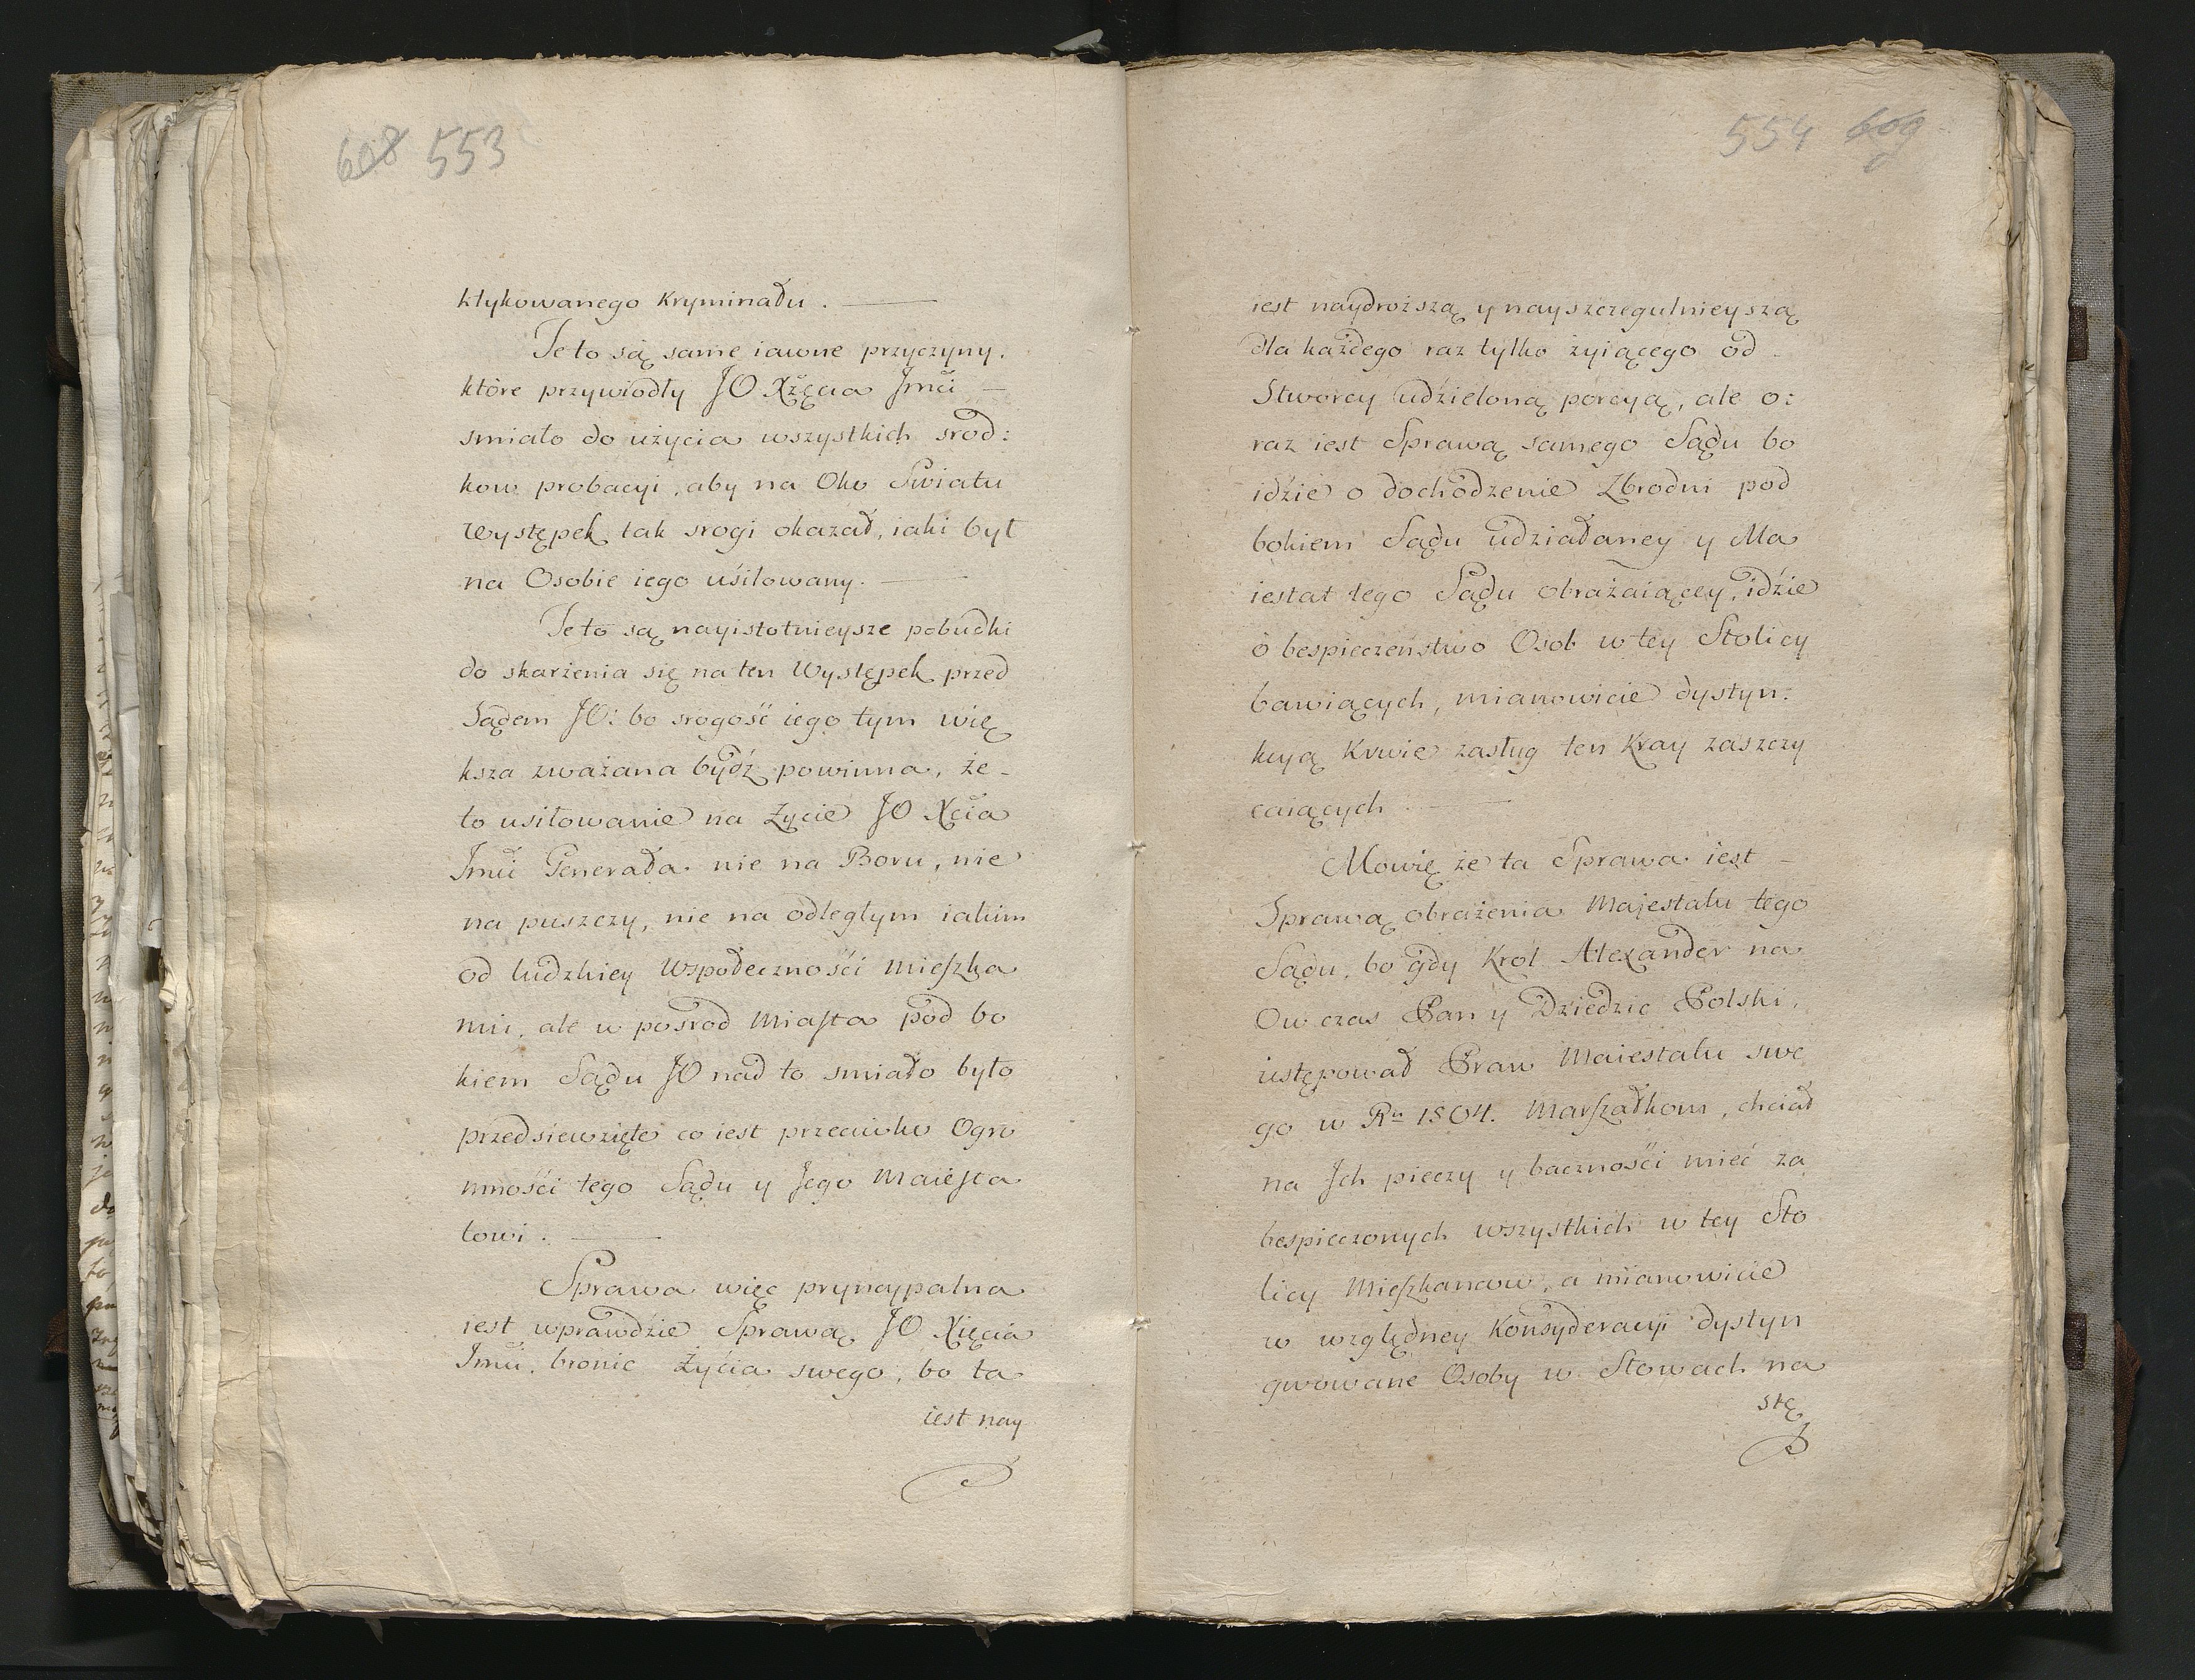 608 553
ktykowanego Kryminału.
Te to są same iawne przyczyny.
które przywiodły JO Xżęcia Jmći
smiało do użycia wszystkich srod:
kow probacyi, aby na Oko Swiatu
Występek tak srogi okazał, iaki był
na Osobie iego uśiłowany.
Te to są nayistotnieysze pobudki
do skarżenia się na ten Występek przed
Sądem JO: bo srogość iego tym wię
ksza zważana bydź powinna, że
to usiłowanie na Życie JO Xcia
Jmći Generała nie na Boru, nie
na puszczy, nie na odległym iakim
od ludzkiey Wspołecznośći mieszka
niu, ale w posrod Miasta pod bo
kiem Sądu JO nad to smiało było
przedsiewzięte co iest przeciwko Ogro
mnośći tego Sądu y Jego Maiesta
towi.
Sprawa więc pryncypalna
iest wprawdzie Sprawą JO Xięcia
Jmći. bronić Życia swego, bo ta
iest nay
554 609
iest naydroższą y nayszczegulnieyszą
dla każdego raz tylko żyiącego od
Stworcy udzieloną porcyą, ale o:
raz iest Sprawą samego Sądu bo
idzie o dochodzenie Zbrodni pod
bokiem Sądu udziałaney y Ma
iestat tego Sądu obrażaiącey, idzie
o bespieczeństwo Osob w tey Stolicy
bawiących, mianowicie dystyn:
kcyą Krwie zasług ten Kray zaszczy
caiących.
Mowię że ta Sprawa iest
Sprawą obrażenia Majestatu tego
Sądu, bo gdy Krol Alexander na
Ow czas Pan y Dziedzic Polski,
ustępował Praw Maiestatu swe
go w Ru 1504. Marszałkom, chciał
na Jch pieczy y bacznośći mieć za
bespieczonych wszystkich w tey Sto
licy Mieszkancow, a mianowicie
w względney Konsyderacyi dystyn
gwowane Osoby w Słowach na
stę